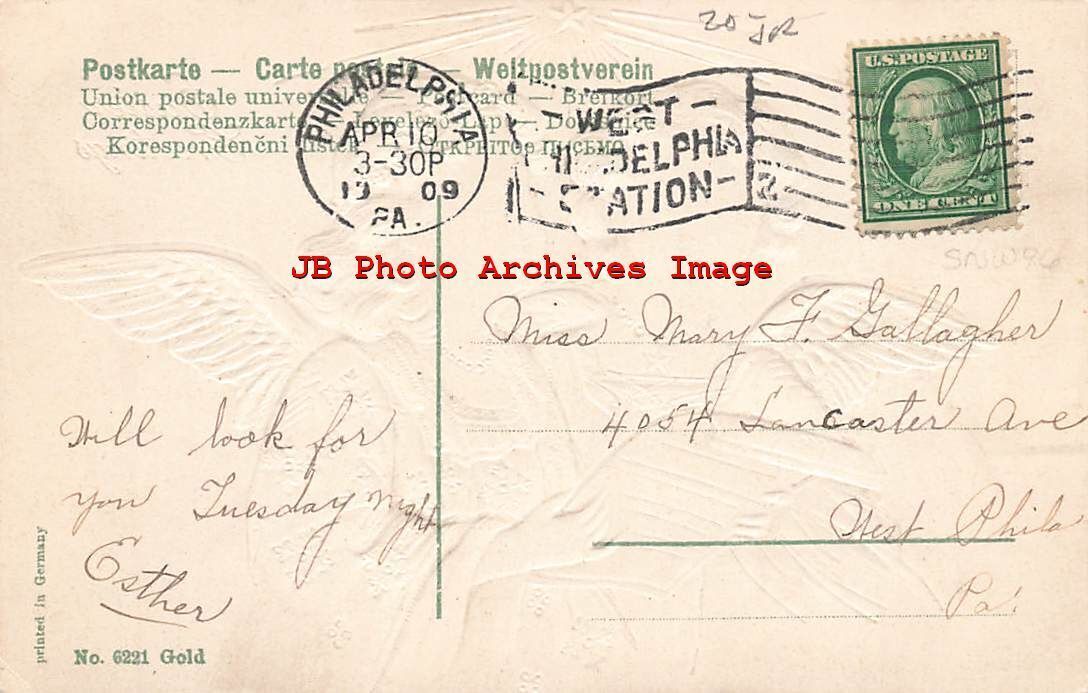 20 JR
Postkarte — Carte postale — Weltpostverein
Union postale universelle — Postcard — Brefkort
Correspondenzkarte — Levelező-Lap — Dopisnice
Korespondenční listek — ОТКРЫТОЕ ПИСЬМО
PHILADELPHIA
APR 10
3-30P
19 09
PA.
WEST
PHILADELPHIA
STATION
2
U.S. POSTAGE
ONE CENT
SNW96
JB Photo Archives Image
Miss Mary F. Gallagher
4054 Lancaster Ave
West Phila
Pa.
Will look for
you Tuesday night
Esther
printed in Germany
No. 6221 Gold